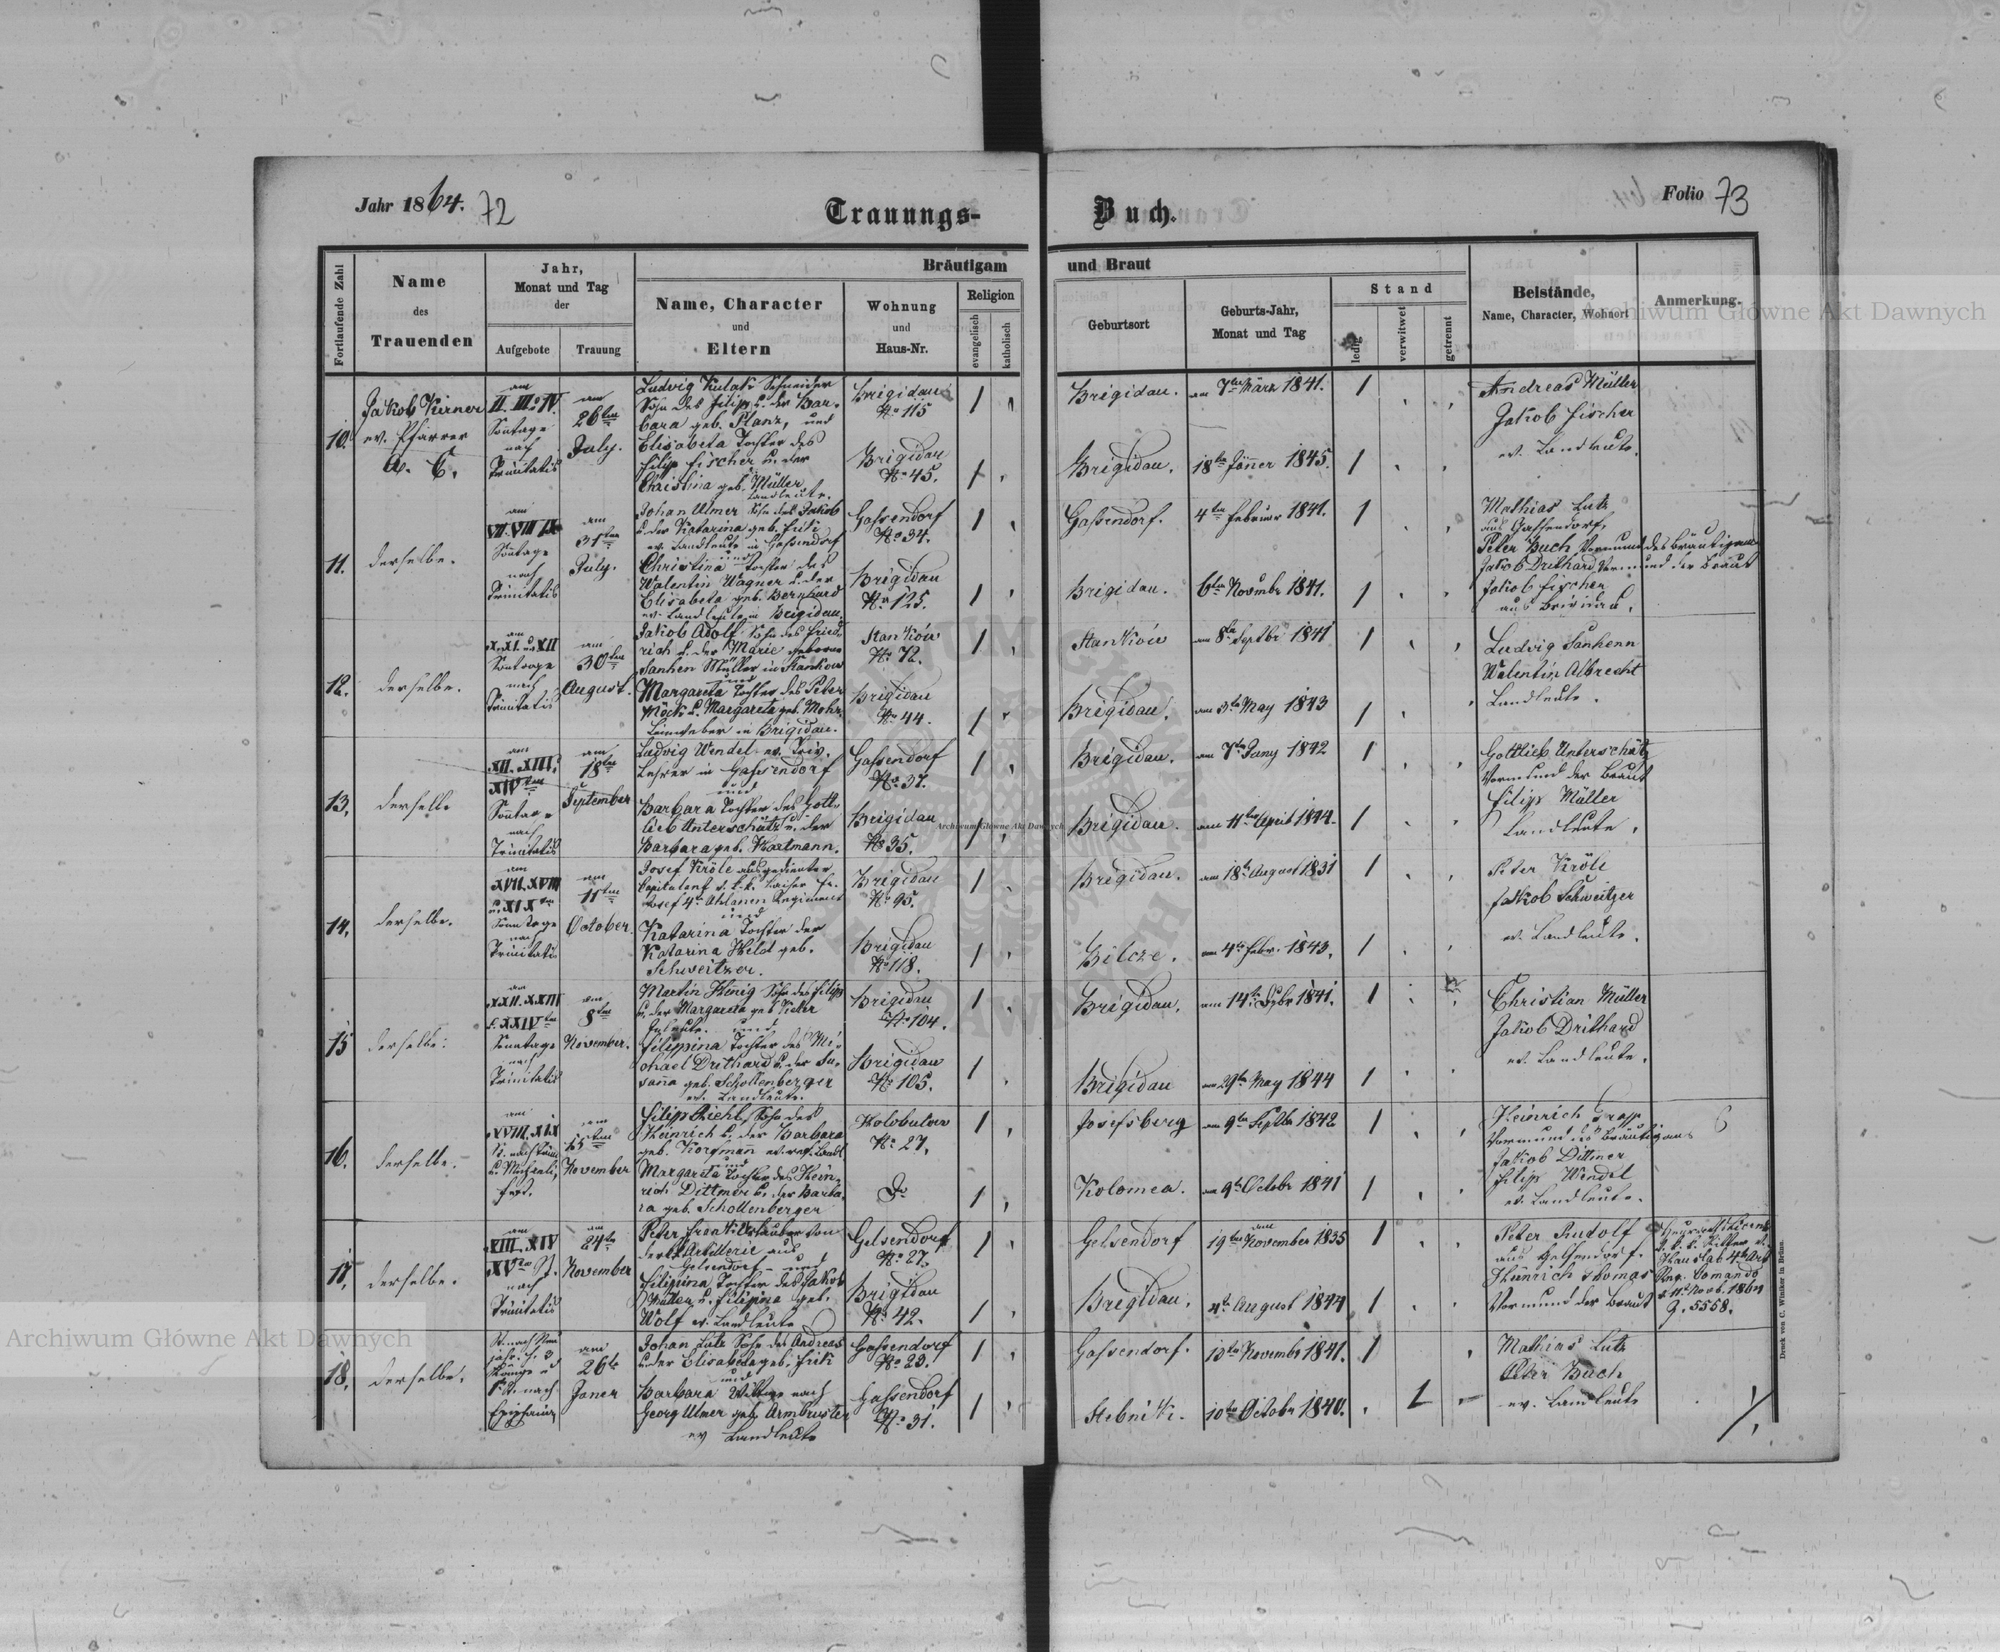 Jahr 1864. 72
Trauungs-
Buch.
Folio 73
Fortlaufende Zahl
Name
des
Trauenden
Jahr,
Monat und Tag
der
Aufgebote
Trauung
Bräutigam
und Braut
Name, Character
und
Eltern
Wohnung
und
Haus-Nr.
Religion
evangelisch
katholisch
Geburtsort
Geburts-Jahr,
Monat und Tag
Stand
ledig
verwitwet
getrennt
Beistände,
Name, Character, Wohnort
Anmerkung.
10.
Jakob Kirner
ev. Pfarrer
A. C.
am
II. III. IV.
Sontage
nach
Trinitatis
am
26ten
July.
Ludvig Kulak Schneider
Sohn des Filip u. der Bar-
bara geb. Planz, und
Elisabeta Tochter des
Filip Fischer u. der
Christina geb. Müller
Landleute.
Brigidau
No 115
Brigidau
No 45.
Brigidau. am 7ten März 1841.
Brigidau. 18ten Jäner 1845.
Andreas Müller
Jakob Fischer
ev. Landleute.
11.
derselbe.
am
VII. VIII. IX
Sontage
nach
Trinitatis
am
31ten
July.
Johan Ulmer Sohn des Jakob
u. der Katarina geb.
ev. Landleute in Gassendorf
und
Christina Tochter des
Walentin Wagner u. der
Elisabeta geb. Bernhard
ev. Landleute in Brigidau.
Gassendorf
No 34.
Brigidau
No 125.
Gassendorf. 4ten Februar 1841.
Brigidau. 6ten Novembr 1841.
Mathias Lutz
aus Gassendorf,
Peter Buch Vormund des Bräutigams
Jakob Drithard, Vormund der Braut
Jakob Fischer
aus Brigidau.
12.
derselbe.
am
X. XI. u. XII
Sontage
nach
Trinitatis
am
30ten
August.
Jakob Adolf Sohn des Fried-
rich u. der Marie geborne
Sanhen Müller in Stankow
und
Margareta Tochter des Peter
Möck u. Margareta geb. Mohr.
Leinweber in Brigidau.
Stanków
No 72.
Brigidau
No 44.
Stanków am 8ten Septbr 1841
Brigidau. am 3ten May 1843
Ludvig Sanhenn
Walentin Albrecht
Landleute.
13.
derselbe
am
XII. XIII.
XIVten
Sontage
nach
Trinitatis
am
18ten
September
Ludvig Wendel ev. Priv.
Lehrer in Gassendorf
und
Barbara Tochter des Gott-
lieb Unterschütz u. der
Barbara geb. Hartmann.
Gassendorf
No 37.
Brigidau
No 35.
Brigidau. am 7ten Juny 1842
Brigidau. am 11ten April 1844.
Gottlieb Unterschütz
Vormund der Braut
Filip Müller
Landleute.
14.
derselbe.
am
XVII. XVIII
u. XIXten
Sonntage
nach
Trinitatis
am
11ten
October.
Josef Kröle ausgedienter
Capitulant d. k. k. Kaiser Fr.
Josef 4ten Uhlanen Regiments
und
Katarina Tochter der
Katarina Held geb.
Schweitzer.
Brigidau
No 95.
Brigidau
No 118.
Brigidau. am 18ten August 1831
Bilcze. am 4ten Febr. 1843.
Peter Kröle
Jakob Schweitzer
ev. Landleute.
15
derselbe.
am
XXII. XXIII
u. XXIVten
Sonntage
nach
Trinitatis
am
8ten
November.
Martin König Sohn des Filip
u. der Margareta geb.
und
Filipina Tochter des Mi-
chael Drithard u. der Su-
sana geb. Schollenberger
ev. Landleute.
Brigidau
No 104.
Brigidau
No 105.
Brigidau. am 14ten 1841.
Brigidau am 29ten May 1844
Christian Müller
Jakob Drithard
ev. Landleute.
16.
derselbe.
am
XVIII. XIX
am
15ten
November
Filip Diehl, Sohn des
Heinrich u. der Barbara
geb. Korfmann
und
Margareta Tochter des Hein-
rich Dittmer u. der Barba-
ra geb. Schollenberger
Holobutow
No 27.
Do
Josefsberg am 9ten Septbr 1842
Kolomea. am 9ten Octobr 1841
Heinrich
Vormund des Bräutigams
Jakob Dittmer
Filip Wendel
ev. Landleute.
17.
derselbe.
am
XIII. XIV
XVten
nach
Trinitatis
am
24ten
November
Peter Urlauber von
der Artillerie aus
Gelsendorf und
Filipina Tochter des Jakob
Müller u. Filipina geb.
Wolf ev. Landleute
Gelsendorf
No 27.
Brigidau
No 42.
Gelsendorf am 19ten November 1835
Brigidau. 4ten August 1844
Peter Rudolf
aus Gelsendorf.
Heinrich Thomas
Vormund der Braut
Reg. Comando
11ten Novb. 1864
5558.
18.
derselbe.
nach
Epiphania
am
26te
Janer
Johan Lutz Sohn des Andreas
u. der Elisabeta geb.
und
Barbara Wittwe nach
Georg Ulmer geb. Armbruster
ev Landleute
Gassendorf
No 23.
Gassendorf
No 31.
Gassendorf. 10ten Novembr 1841.
Stebnik. 10ten Octobr 1840.
Mathias Lutz
Peter Buch
ev. Landleute
Druck von C. Winiker in Brünn.
Archiwum Główne Akt Dawnych
Archiwum Główne Akt Dawnych
Archiwum Główne Akt Dawnych